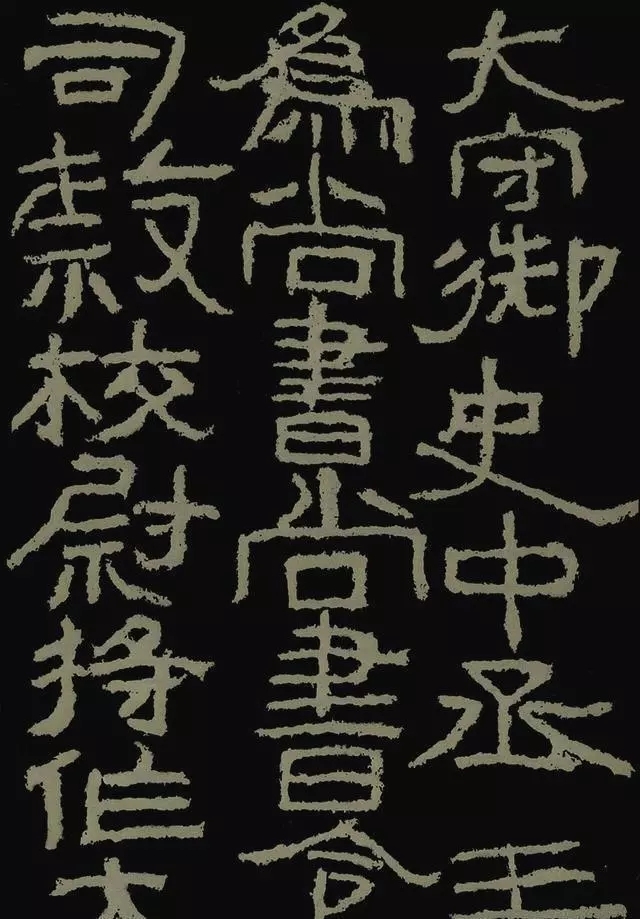 大守御史中丞
爲尚書尚書令
司隸校尉將作大